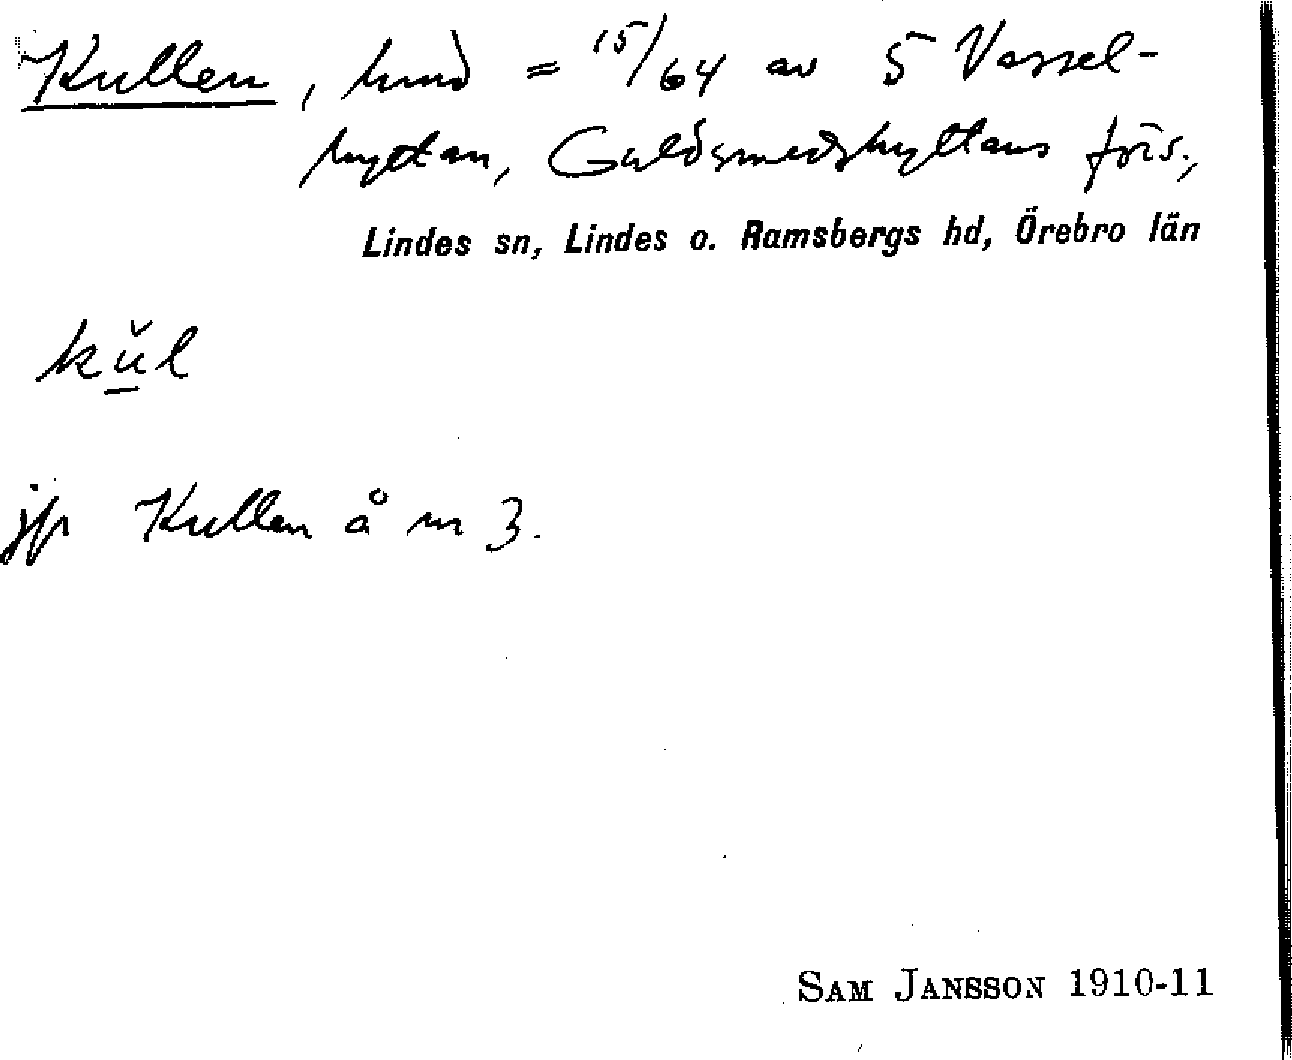 Kullen, hmd = 15/64 av 5 Vassel-
hyttan, Guldsmedshyttans förs.,
Lindes sn, Lindes o. Ramsbergs hd, Örebro län
kŭl
jfr Kullen å nr 3.
SAM JANSSON 1910-11